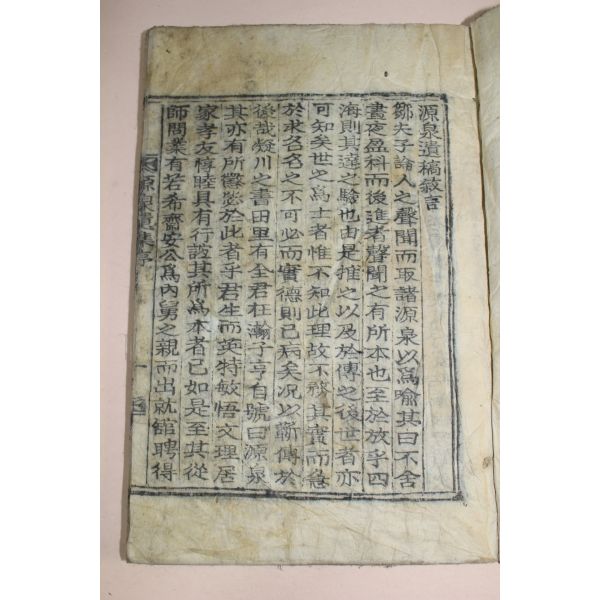 源泉遺稿敍言
鄒夫子論人之聲聞而取諸源泉以爲喩其曰不舍
晝夜盈科而後進者聲聞之有所本也至於放乎四
海則其達之驗也由是推之以及於傳之後世者亦
可知矣世之爲士者惟不知此理故不務其實而急
於求名名之不可必而實德則已病矣况以蘄傳於
後哉凝川之書田里有全君在瀚子亨自號曰源泉
其亦有所懲毖於此者乎君生而英特敏悟文理居
家孝友惇睦具有行誼其所爲本者已如是至其從
師問業有若希齋安公爲內舅之親而出就館聘得
源泉遺集序
一